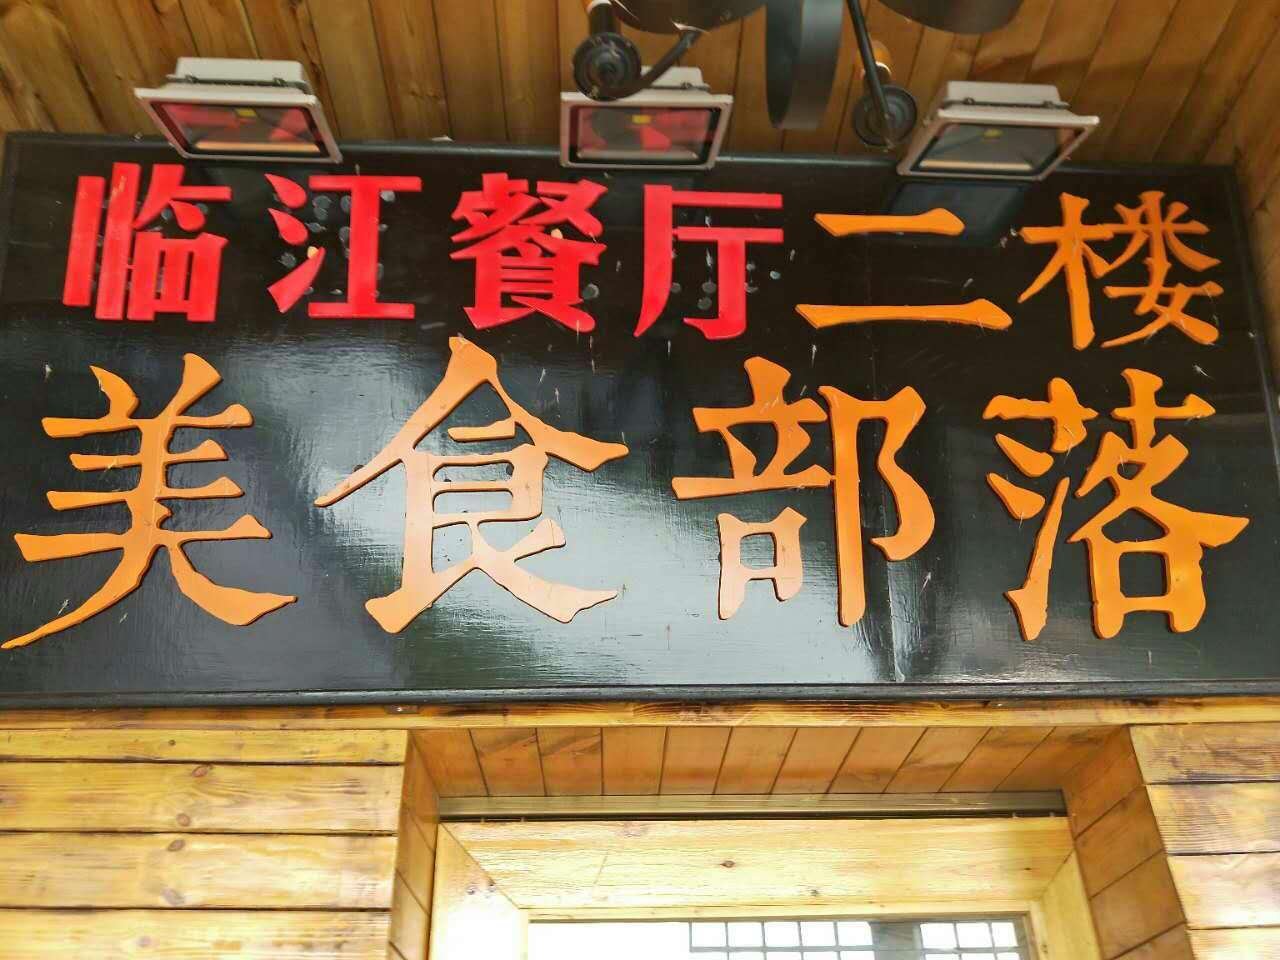 临江餐厅二楼
美食部落